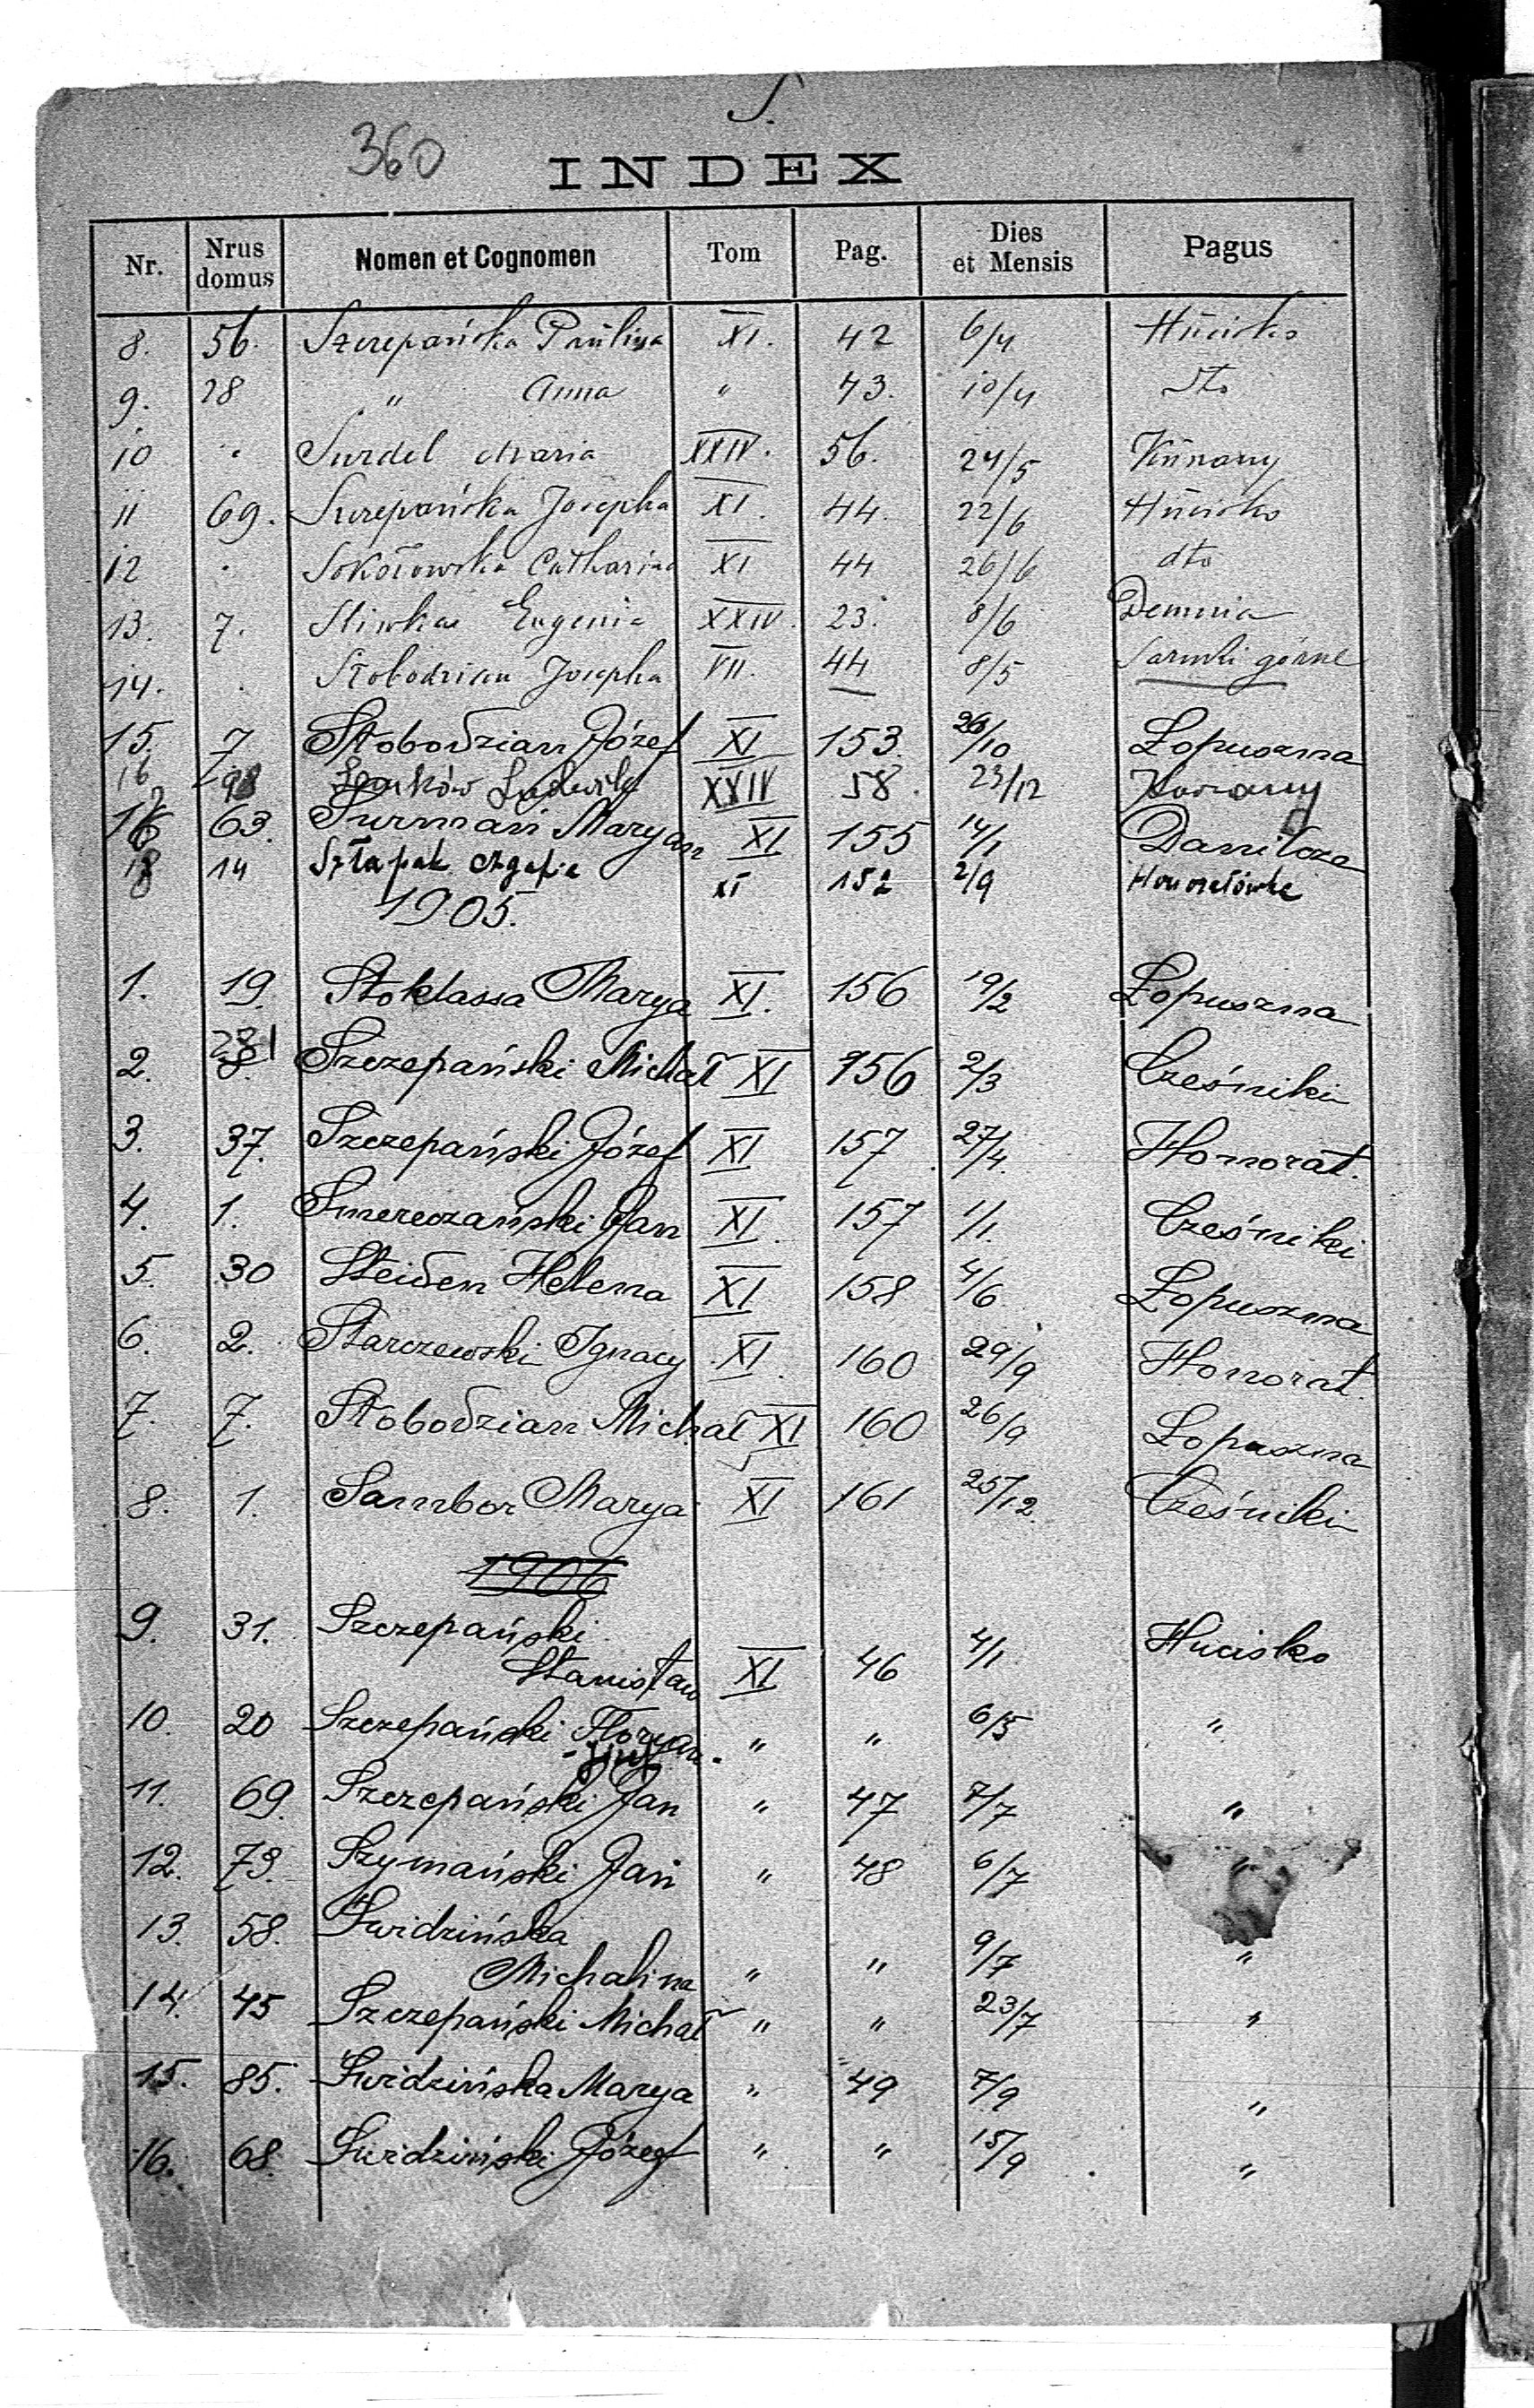 S.
360
INDEX
Nr. Nrus domus Nomen et Cognomen Tom Pag. Dies et Mensis Pagus
8. 56. Szczepańska Paulina XI. 42 6/4 Hucisko
9. 28 " Anna " 43. 10/4 dto
10 Surdel Maria XXIV. 56. 24/5
11 69. Szczepańska Josepha XI. 44. 22/6 Hucisko
12 Sokołowska Catharina XI 44 26/6 dto
13. 7. Sliwka Eugenia XXIV. 23. 8/6 Demnia
14. Słobodzian Josepha VII. 44 8/5 Sarnki górne
15. 7 Słobodzian Józef XI 153 /10 Łopuszna
16 98 XXIV 58. 23/12
63. Surman Maryan XI 155 14/1 Danilcze
18 14 Szłapak Agafia XI 152 2/9 Honoratówka
1905.
1. 19. Stoklassa Marya XI. 156 19/2 Łopuszna
2. Szczepański Michał XI 156 2/3 Cześniki
3. 37. Szczepański Józef XI 157 27/4. Honorat.
4. 1. Smereczański Jan XI. 157 1/1. Cześniki
5. 30 Steiden Helena XI 158 4/6 Łopuszna
6. 2. Starczewski Ignacy XI. 160 29/9 Honorat.
7. 7. Słobodzian Michał XI 160 26/9 Łopuszna
8. 1. Sambor Marya XI 161 25/12. Cześniki
1906
9. 31. Szczepański
Stanisław XI 46 4/1 Hucisko
10. 20 Szczepański Floryan " " 6/5 "
11. 69. Szczepański Jan " 47 7/7 "
12. 79. Szymański Jan " 48 6/7 "
13. 58. Swidzińska
Michalina " " 9/7 "
14. 45 Szczepański Michał " " 23/7 "
15. 85. Swidzińska Marya " 49 7/9 "
16. 68. Swidziński Józef " " 15/9 "